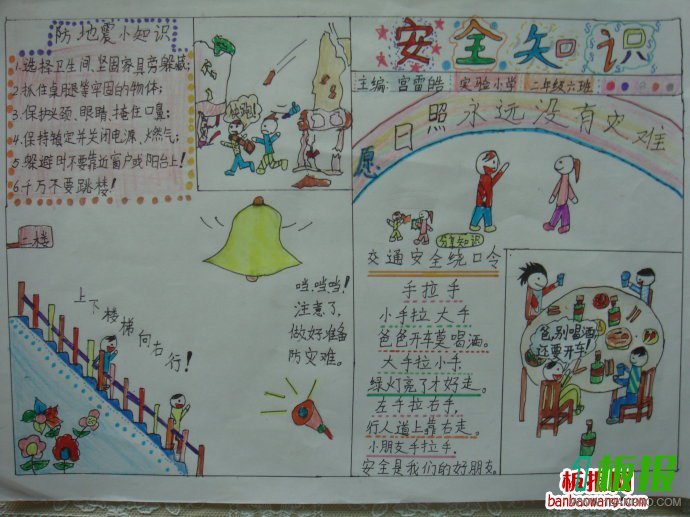 防地震小知识
1、选择卫生间、坚固家具旁躲藏;
2、抓住桌腿等牢固的物体;
3、保护头颈、眼睛、掩住口鼻;
4、保持镇定并关闭电源、燃气;
5、躲避时不要靠近窗户或阳台上!
6、千万不要跳楼!
快跑!
二楼
上下楼梯向右行!
当、当、当!
注意了,
做好准备
防灾难。
安全知识
主编:宫雷皓 实验小学 二年级六班
愿日照永远没有灾难
分享知识
交通安全绕口令
手拉手
小手拉大手
爸爸开车莫喝酒。
大手拉小手,
绿灯亮了才好走。
左手拉右手,
行人道上靠右走。
小朋友手拉手,
安全是我们的好朋友。
爸,别喝酒,
还要开车!
板报网
banbaowang.com
板报